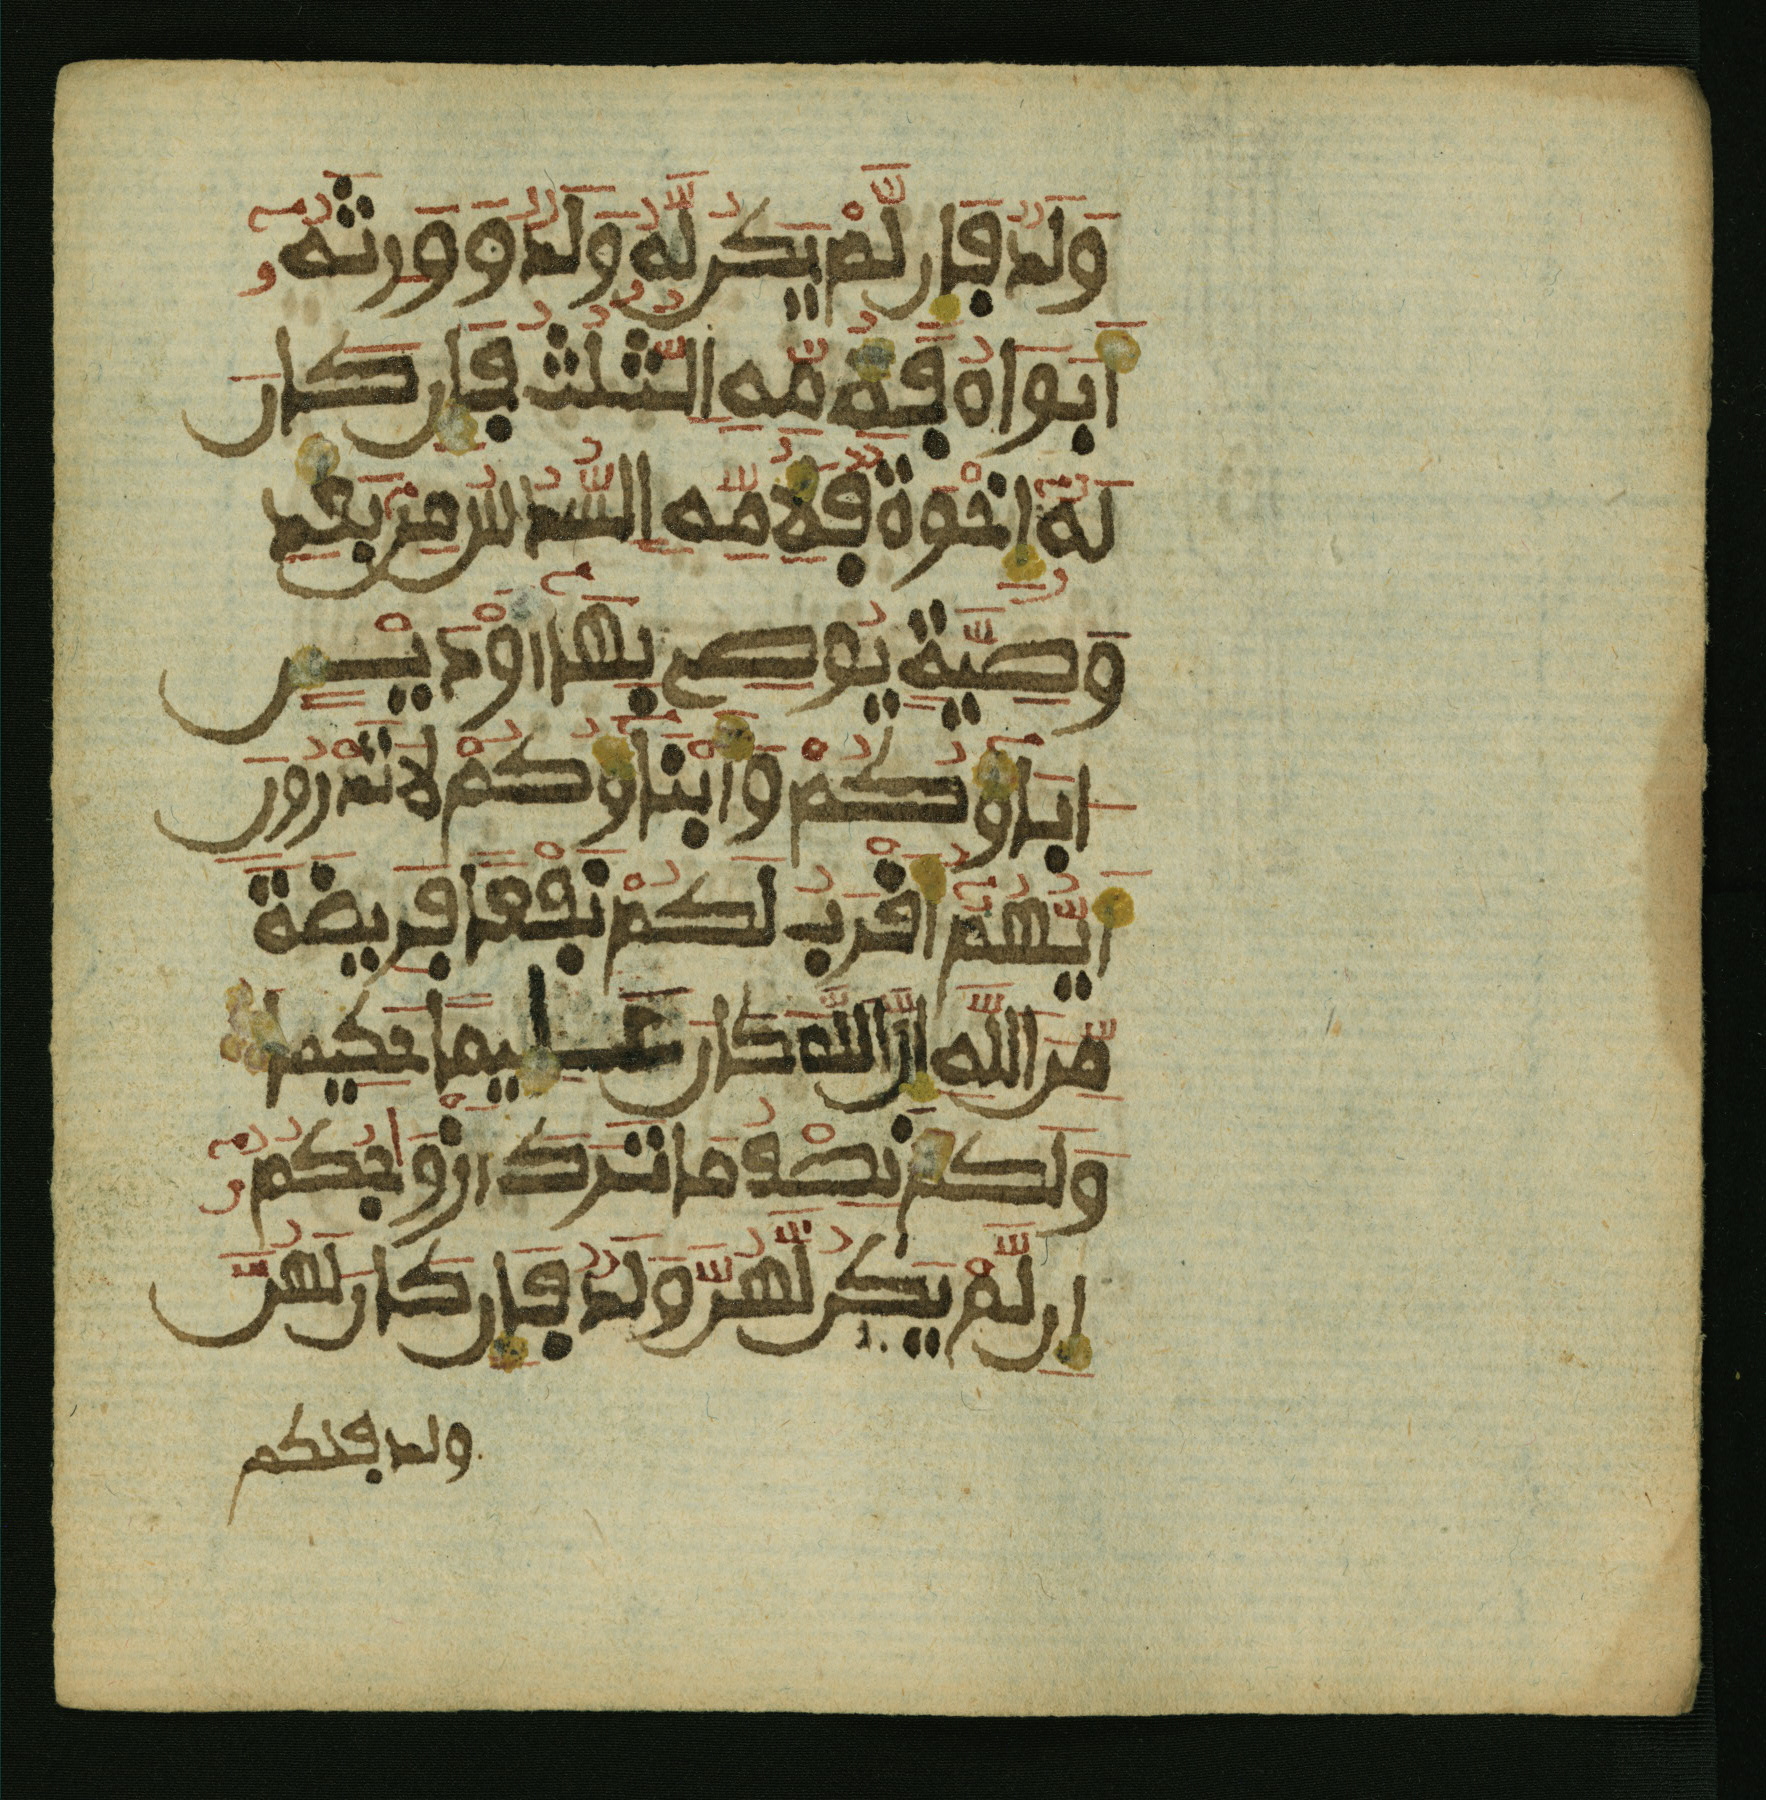 وَلَدٌ فَإِن لَّمْ يَكُن لَّهُ وَلَدٌ وَوَرِثَهُ
أَبَوَاهُ فَلِأُمِّهِ الثُّلُثُ فَإِن كَانَ
لَهُ إِخْوَةٌ فَلِأُمِّهِ السُّدُسُ مِنْ بَعْدِ
وَصِيَّةٍ يُوصِي بِهَا أَوْ دَيْنٍ
ابَاؤُكُمْ وَأَبْنَاؤُكُمْ لَا تَدْرُونَ
أَيُّهُمْ أَقْرَبُ لَكُمْ نَفْعًا فَرِيضَةً
مِّنَ اللَّهِ إِنَّ اللَّهَ كَانَ عَلِيمًا حَكِيمًا
وَلَكُمْ نِصْفُ مَا تَرَكَ أَزْوَاجُكُمْ
إِن لَّمْ يَكُن لَّهُنَّ وَلَدٌ فَإِن كَانَ لَهُنَّ
ولد فلكم